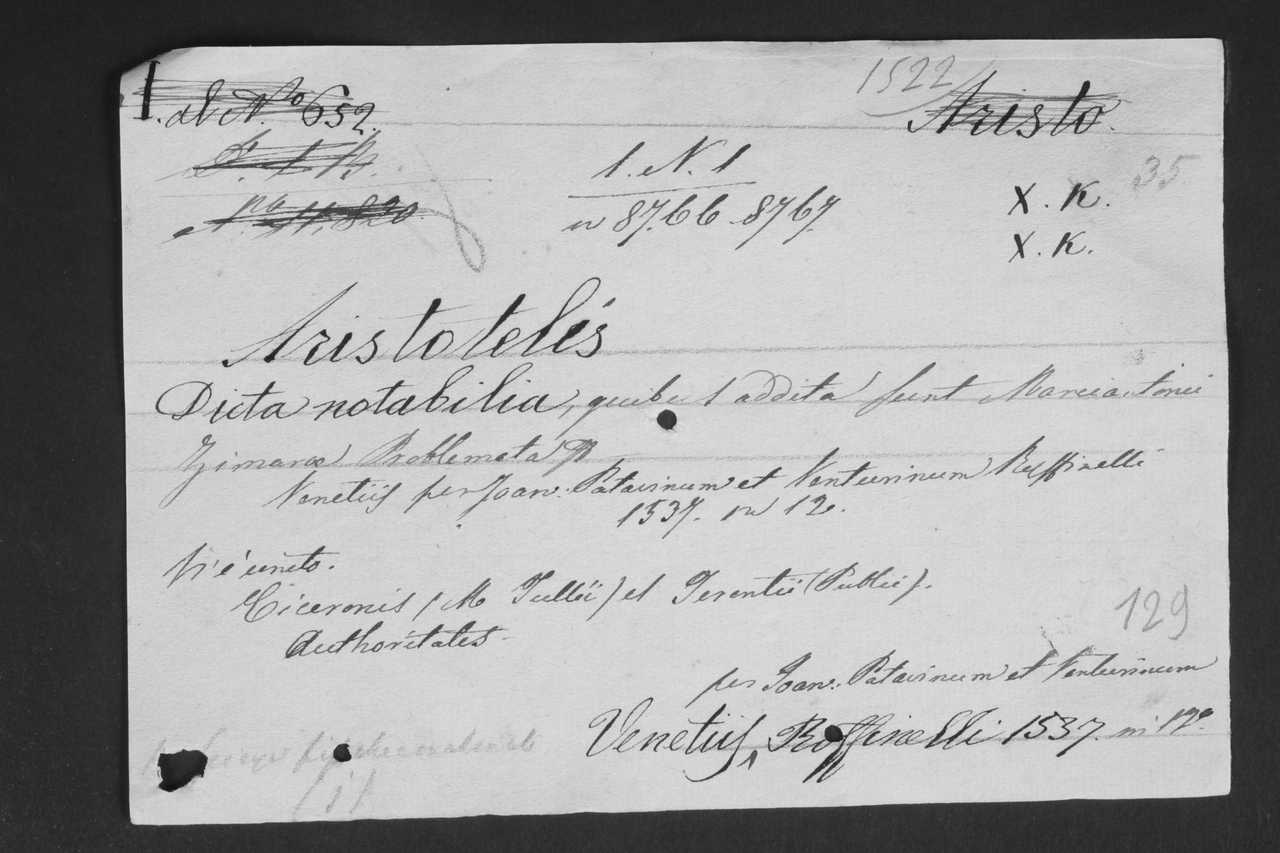 1522
al N.o 652.
Aristo.
1. N. 1
35
X. K.
N.o 11,820.
in 8766 8767
X. K.
Aristotelés
Dicta notabilia, quib. addita sunt Marciantonii
Zimarae Problemata
Venetiis per Joan. Patavinum et Venturinum Ruffinelli
1537. in 12.
Vi é unito.
Ciceronis (M Tullii) et Terentii (Publii).
Authoritates
129
per Joan. Patavinum et Venturinum
Venetiis, Roffinelli 1537. in 12o
(1)